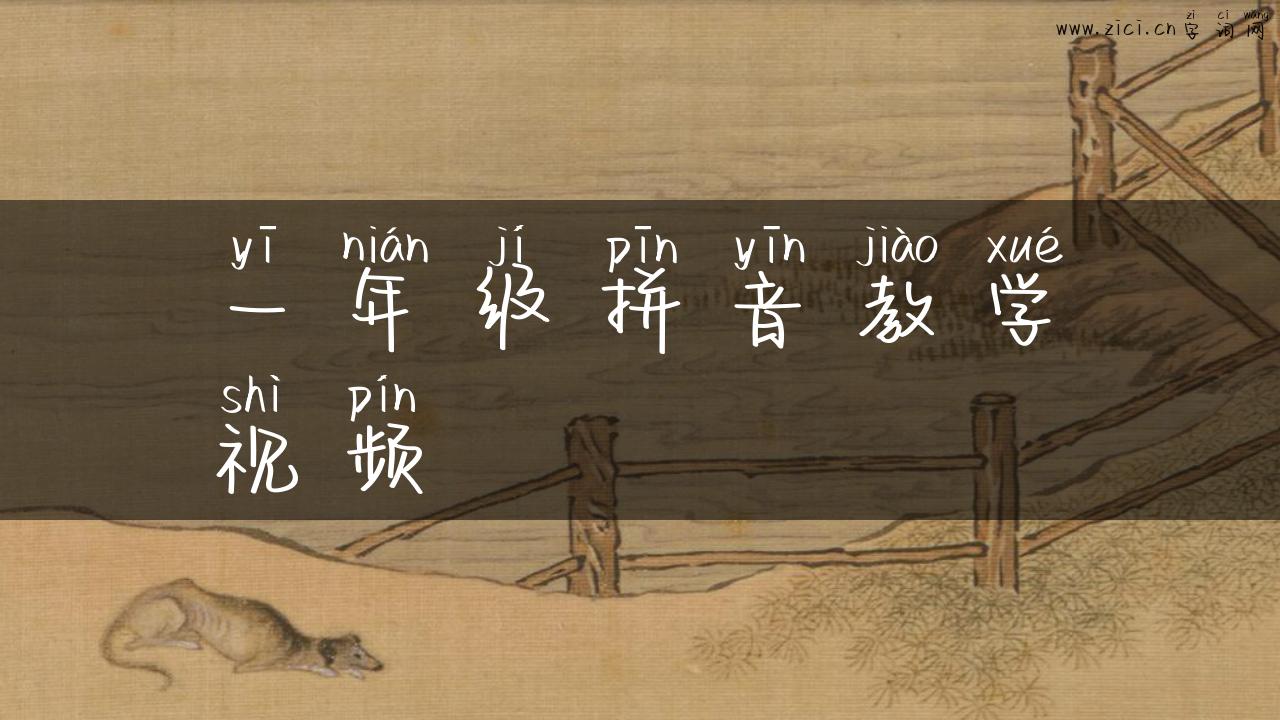 zi ci wang
www.zici.cn 字词网
yī nián jí pīn yīn jiào xué
一年级拼音教学
shì pín
视频